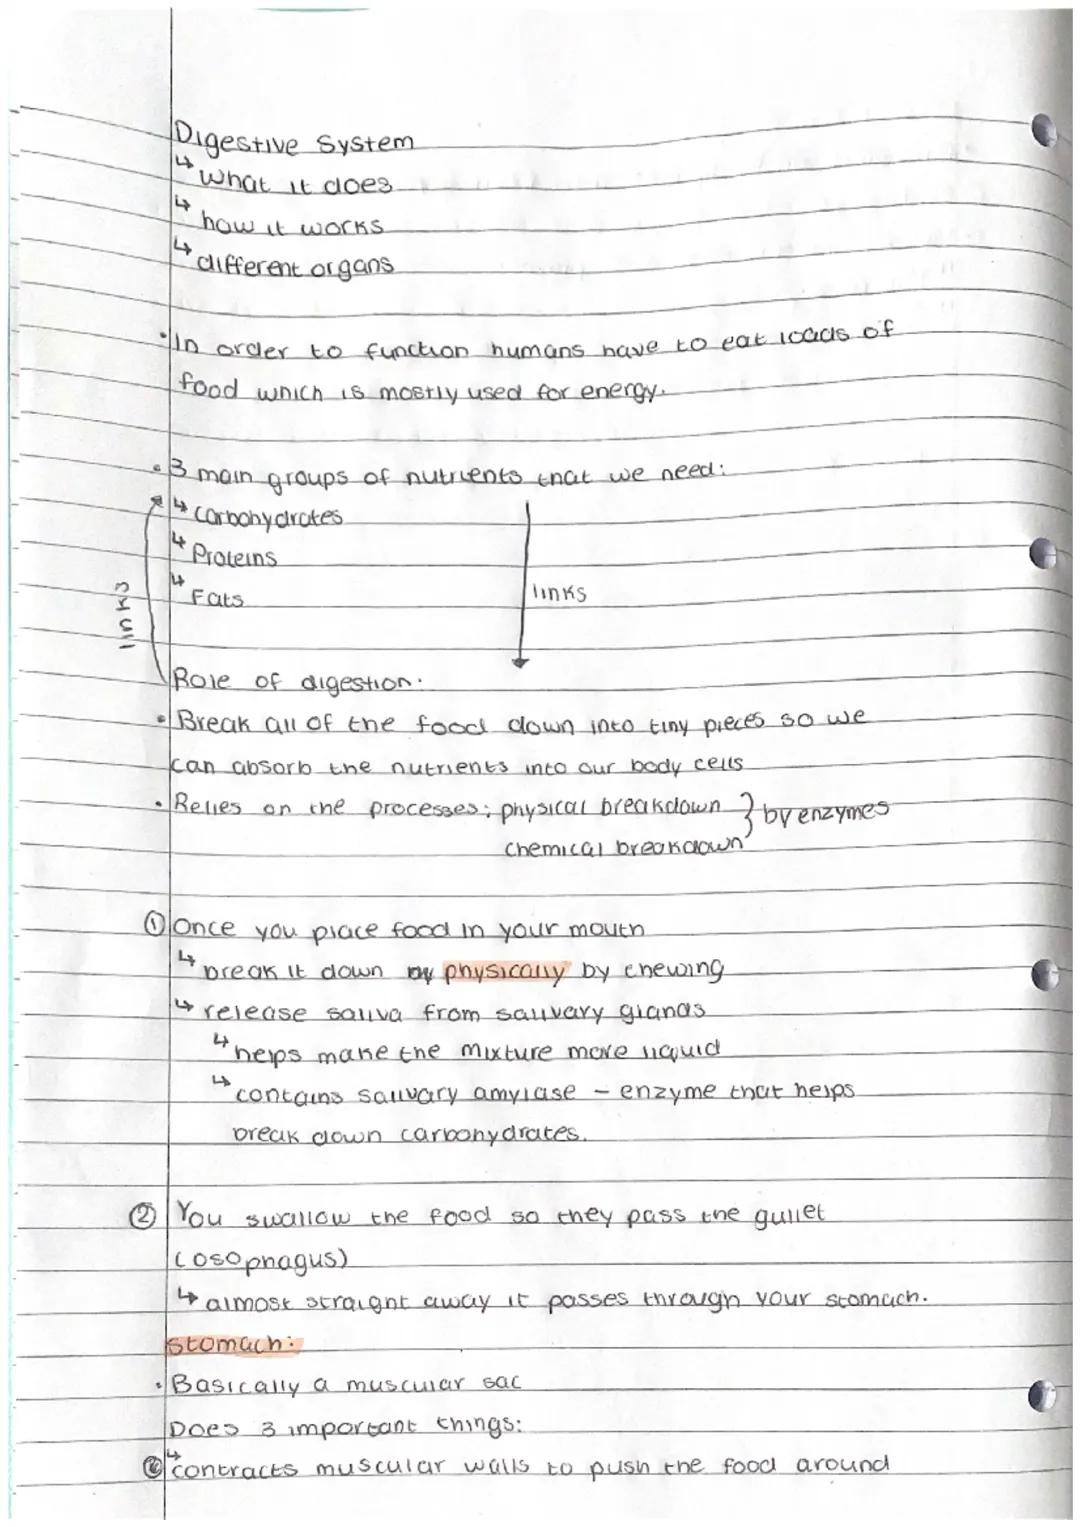 Digestive System
↳ what it does
↳ how it works
↳ different organs
• In order to function humans have to eat loads of
food which is mostly used for energy.
• 3 main groups of nutrients that we need:
↳ Carbohydrates
↳ Proteins
↳ Fats
links
links
Role of digestion:
• Break all of the food down into tiny pieces so we
can absorb the nutrients into our body cells
• Relies on the processes: physical breakdown } by enzymes
chemical breakdown
① Once you place food in your mouth
↳ break it down physically by chewing
↳ release saliva from salivary glands
↳ helps make the mixture more liquid
↳ contains salivary amylase - enzyme that helps
break down carbohydrates.
② You swallow the food so they pass the gullet
(osophagus)
↳ almost straight away it passes through your stomach.
Stomach:
• Basically a muscular sac
Does 3 important things:
↳ contracts muscular walls to push the food around